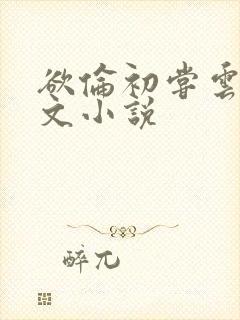 欲倫初嘗雲
文小說
醉兀